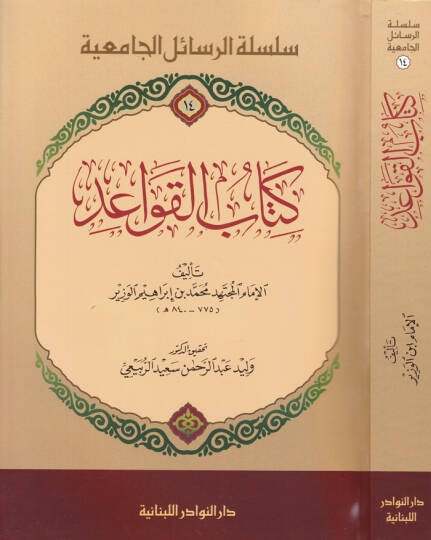 سلسلة الرسائل الجامعية
١٤
كتاب القواعد
تأليف
الإمام المجتهد محمد بن إبراهيم الوزير
(٧٧٥ - ٨٤٠ هـ)
تحقيق الدكتور
وليد عبد الرحمن سعيد الربيعي
دار النوادر اللبنانية
سلسلة
الرسائل
الجامعية
١٤
كتاب القواعد
تأليف
الإمام ابن الوزير
دار النوادر
اللبنانية